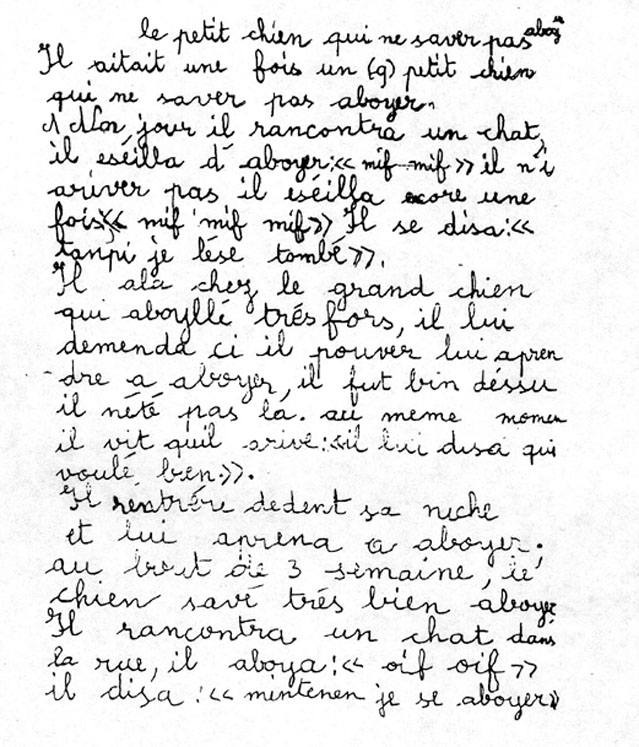 le petit chien qui ne saver pas aboyer
Il aitait une fois un (q) petit chien
qui ne saver pas aboyer.
jour il rancontra un chat,
il eséilla d'aboyer:« mif mif » il n'i
ariver pas il eséilla encore une
fois:« mif mif mif» Il se disa:«
tanpi je lése tombé».
Il ala chez le grand chien
qui aboyllé trés fors, il lui
demenda ci il pouver lui apren
dre a aboyer, il fut bin déssu
il nété pas là. au meme momen
il vit quil arive:«il lui disa qui
voulé bien.».
Il rentrére dedent sa niche
et lui aprena a aboyer;
au bout de 3 semaine, le
chien savé trés bien aboyer
Il rancontra un chat dans
la rue, il aboya:« oif oif »
il disa :« mintenen je se aboyer»